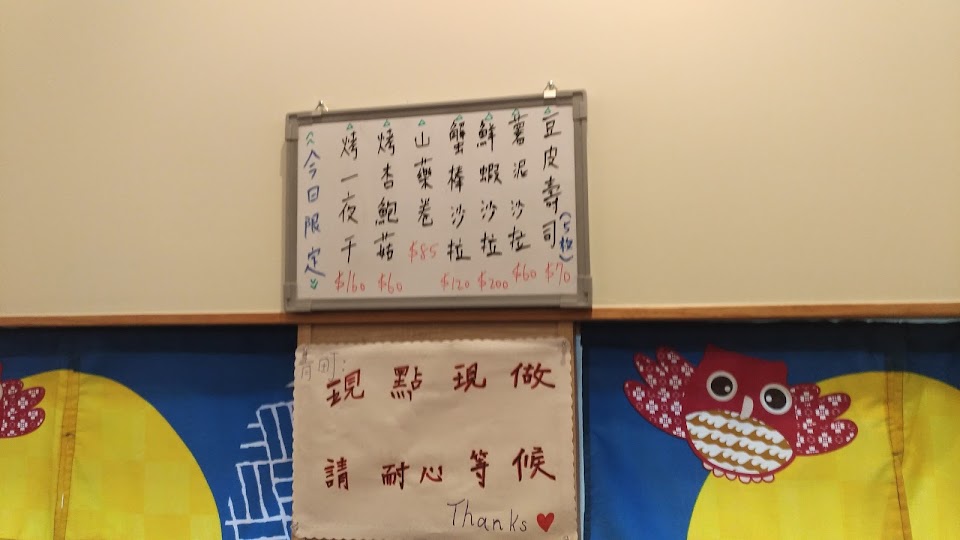 豆皮壽司(5粒) $70
薯泥沙拉 $60
鮮蝦沙拉 $200
蟹棒沙拉 $120
山藥卷 $85
烤杏鮑菇 $60
烤一夜干 $160
今日限定
現點現做
請耐心等候
Thanks